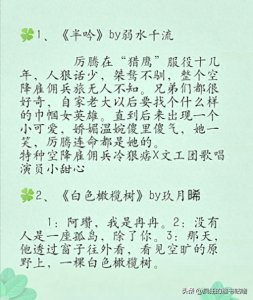 1、《半吟》by弱水千流
厉腾在“猎鹰”服役十几
年，人狠话少，桀骜不驯，整个空
降雇佣兵旅无人不知。兄弟们都很
好奇，自家老大以后要找个什么样
的巾帼女英雄。直到后来出现一个
小可爱，娇媚温婉傻里傻气，她一
笑，厉腾连命都是她的。
特种空降雇佣兵冷狠痞X文工团歌唱
演员小甜心
2、《白色橄榄树》by玖月晞
1：阿瓒，我是冉冉。2：没有
人是一座孤岛，除了你。3：那天，
他透过窗子往外看，看见空旷的原
野上，一棵白色橄榄树。